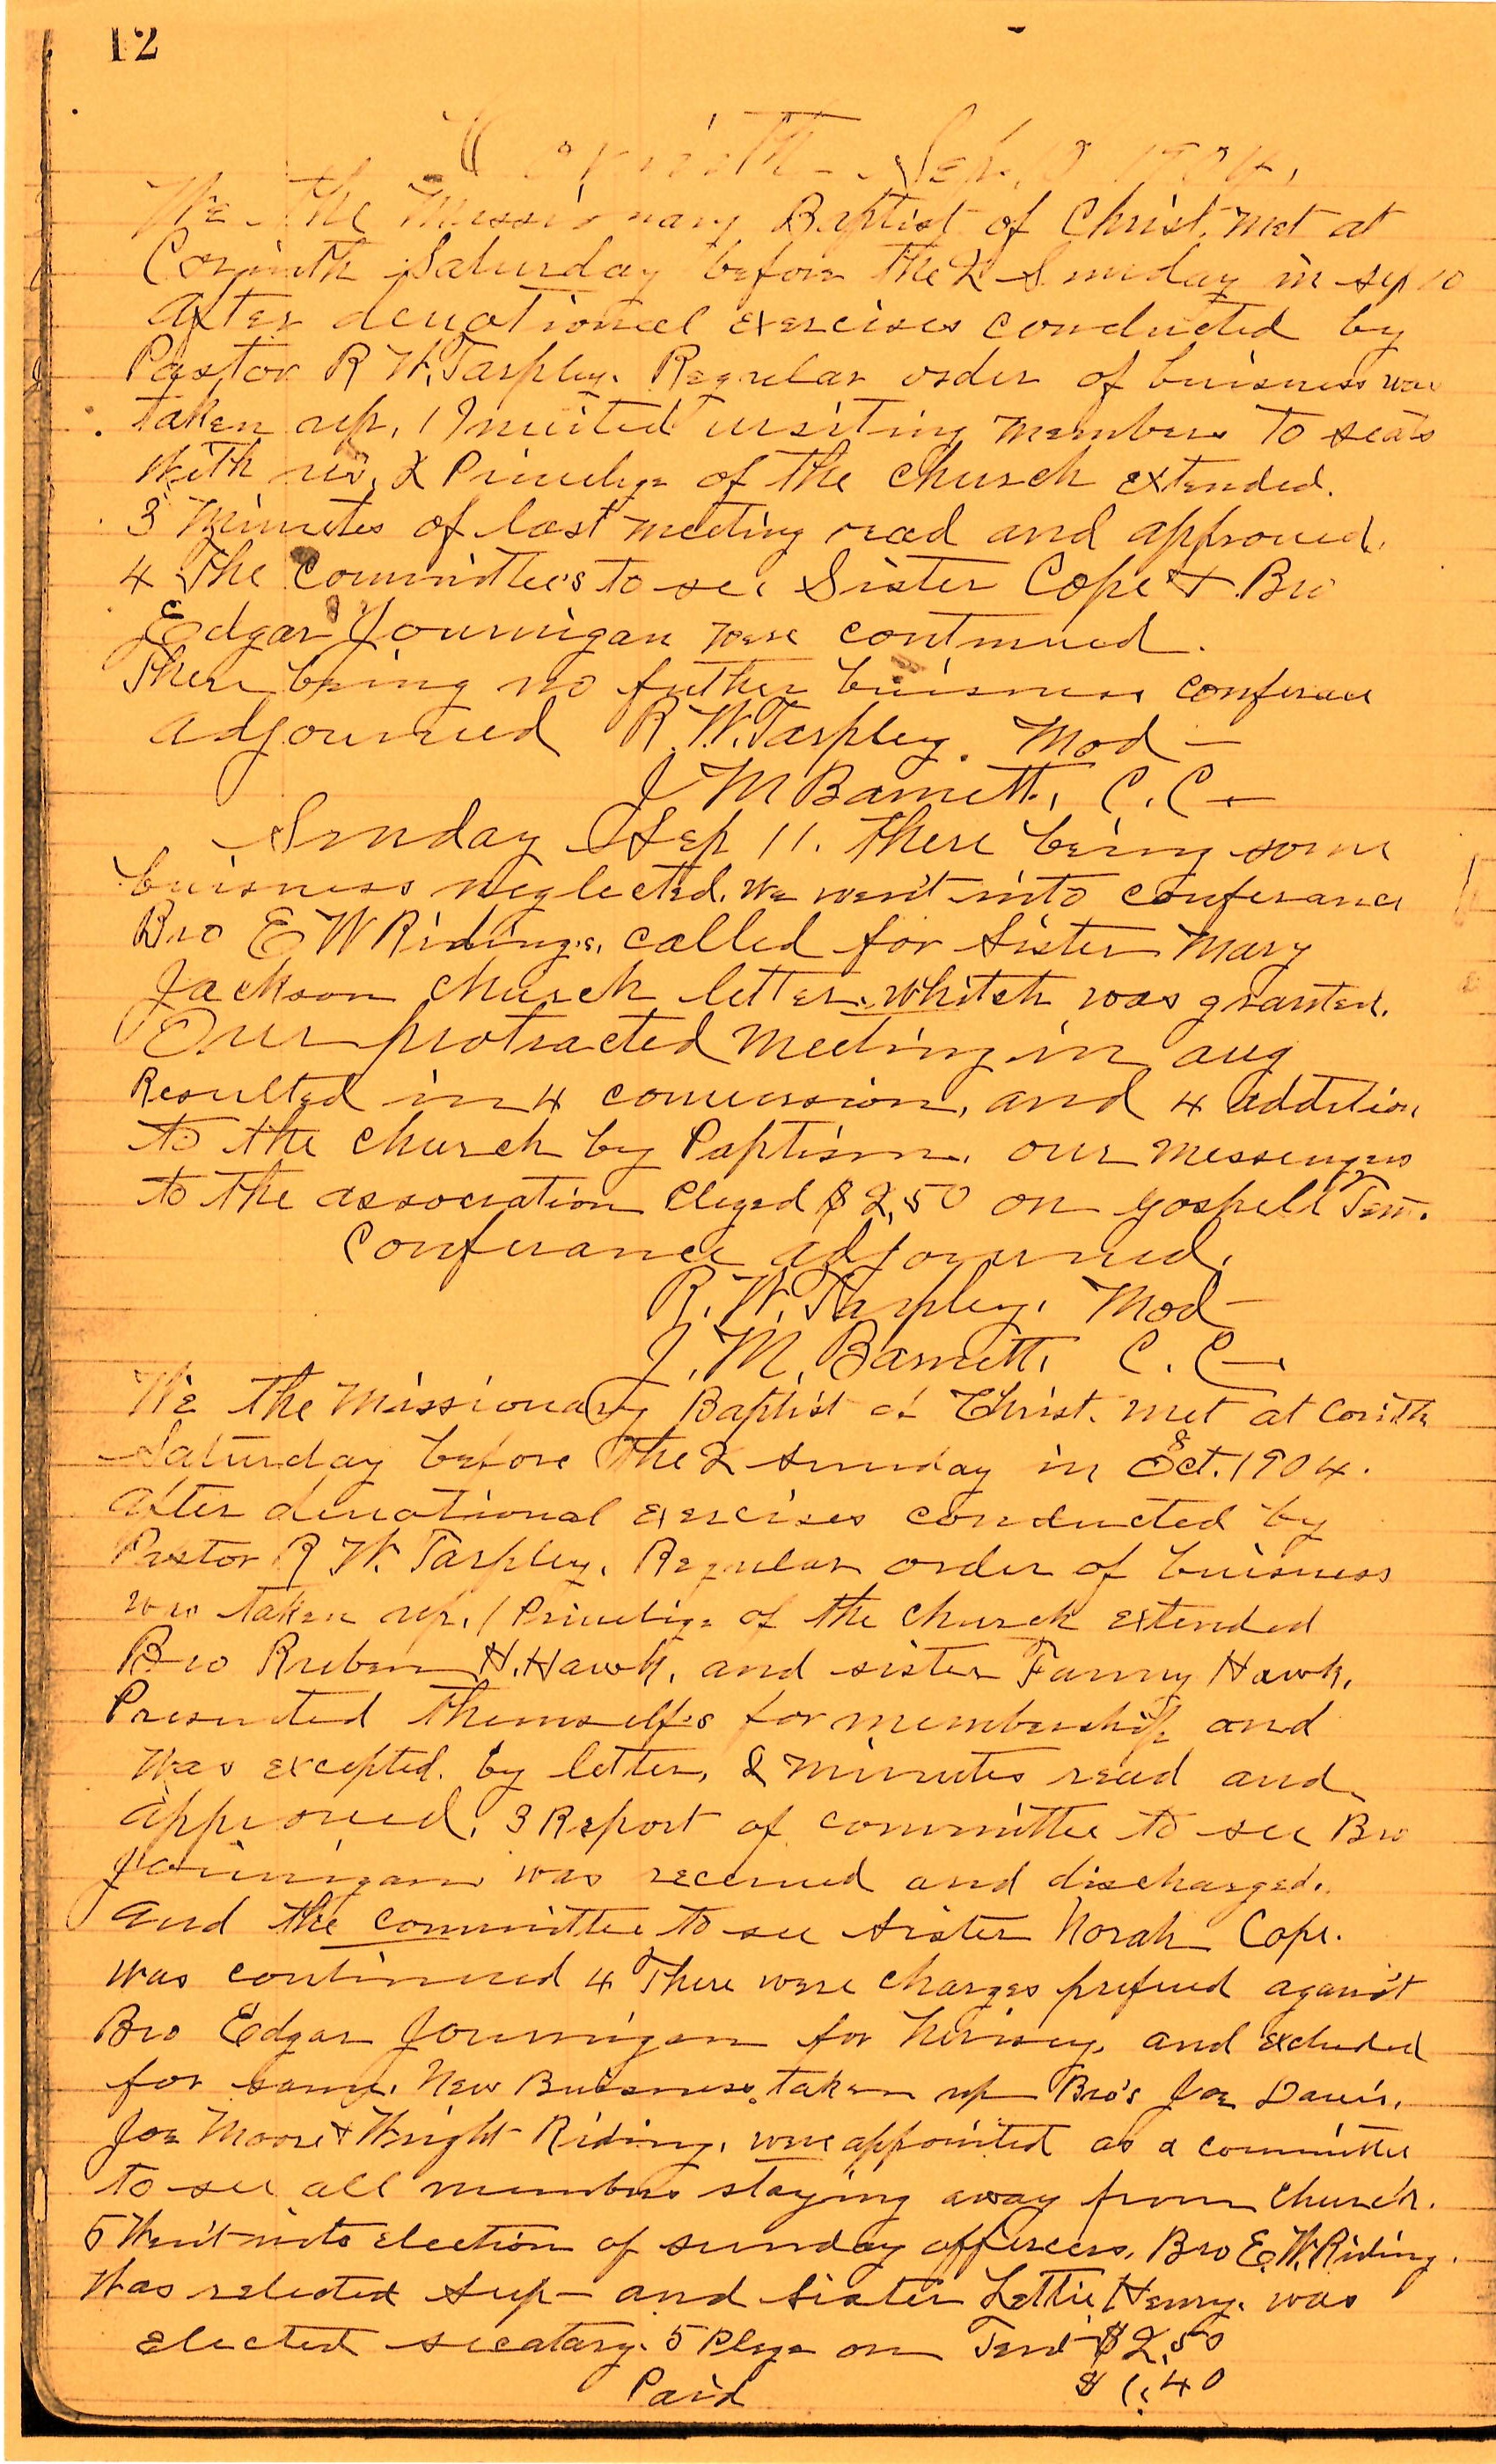 12
Corinth Sep. 10 1904.
We the Missionary Baptist of Christ. met at
Corinth Saturday before the 2 Sunday in sep 10
after devotional exercises conducted by
Pastor R W. Tarpley. Regular order of buisness was
taken up, 1 Invited visiting members to seats
with us, 2 Privelige of the church extended.
3 Minutes of last meeting read and approved.
4 The committees to see Sister Cope & Bro
Edgar Journigan were continued.
There being no futher buisness conferance
adjourned R. W. Tarpley. Mod
J M Barnett, C. C.
Sunday Sep 11. There being some
buisness neglected. we went into conferance
Bro E W Ridings, called for Sister Mary
Jackson church letter. whitch was granted.
Our protracted meeting in aug
Resulted in 4 conversion, and 4 addition
to the church by Paptism. our messengers
to the association Pleged $2,50 on gospell Tent.
Conferance adjourned.
R. W. Tarpley. Mod
J. M. Barnett. C. C.
We the Missionary Baptist of Christ. met at Corith
Saturday before the 2 sunday in Oct. 8 1904.
after devotional exercises conducted by
Pastor R W. Tarpley. Regular order of buisness
was taken up. 1 Privelige of the church extended
Bro Ruben H. Hawk, and sister Fanny Hawk,
Presented themselfs for membership and
was excepted. by letter, 2 minutes read and
approved. 3 Report of committee to see Bro
Journigan was received and discharged.
and the committee to see sister Norah Cope.
was continued 4 There were charges prefered against
Bro Edgar Journigan for and excluded
for same. New Buisness. taken up Bro's Joe Davis,
Joe Moore & Wright Riding. were appointed as a committee
to see all members staying away from church.
5 Went into election of sunday officers. Bro E. W. Riding.
Was relected Sup- and Sister Lettie Henry. was
elected secatary. 5 Plege on Tent $2,50
Paid $1.40